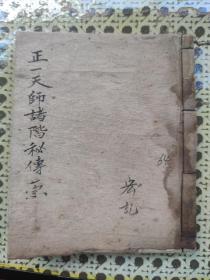 正一天師諸階秘傳
記